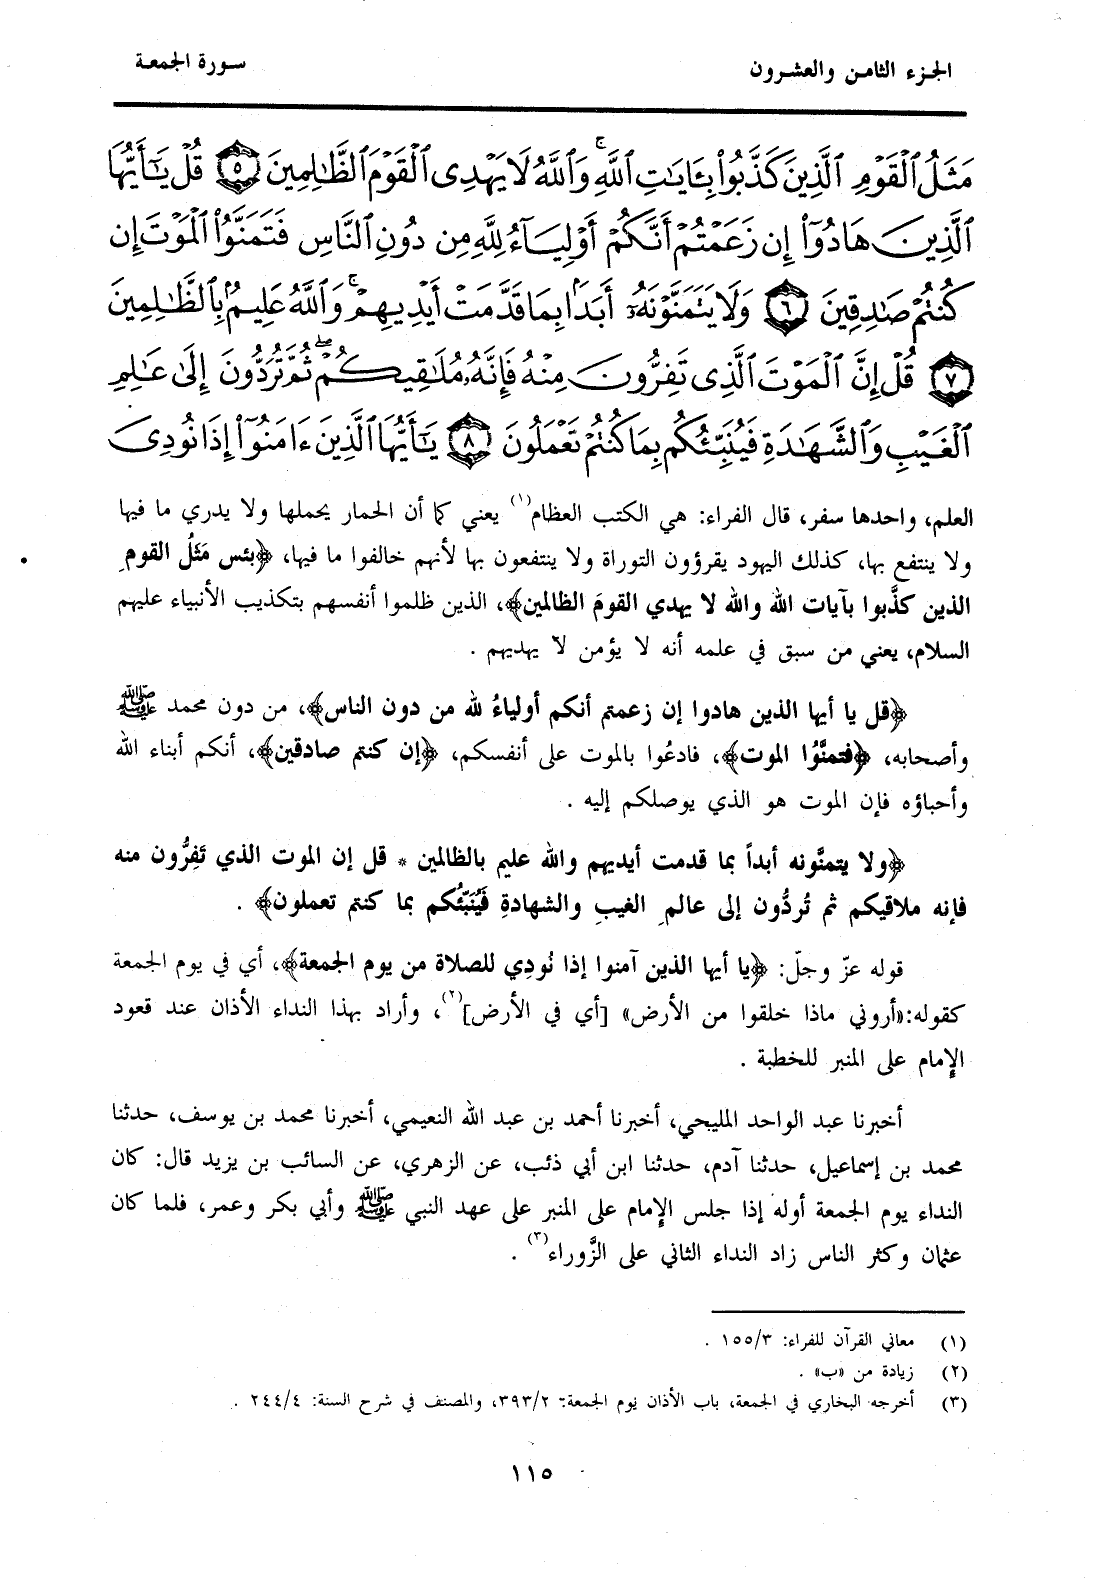 الجزء الثامن والعشرون
سورة الجمعة
مَثَلُ ٱلْقَوْمِ ٱلَّذِينَ كَذَّبُوا۟ بِـَٔايَـٰتِ ٱللَّهِ ۚ وَٱللَّهُ لَا يَهْدِى ٱلْقَوْمَ ٱلظَّـٰلِمِينَ ٥ قُلْ يَـٰٓأَيُّهَا
ٱلَّذِينَ هَادُوٓا۟ إِن زَعَمْتُمْ أَنَّكُمْ أَوْلِيَآءُ لِلَّهِ مِن دُونِ ٱلنَّاسِ فَتَمَنَّوُا۟ ٱلْمَوْتَ إِن
كُنتُمْ صَـٰدِقِينَ ٦ وَلَا يَتَمَنَّوْنَهُۥٓ أَبَدًۢا بِمَا قَدَّمَتْ أَيْدِيهِمْ ۚ وَٱللَّهُ عَلِيمٌۢ بِٱلظَّـٰلِمِينَ
٧ قُلْ إِنَّ ٱلْمَوْتَ ٱلَّذِى تَفِرُّونَ مِنْهُ فَإِنَّهُۥ مُلَـٰقِيكُمْ ۖ ثُمَّ تُرَدُّونَ إِلَىٰ عَـٰلِمِ
ٱلْغَيْبِ وَٱلشَّهَـٰدَةِ فَيُنَبِّئُكُم بِمَا كُنتُمْ تَعْمَلُونَ ٨ يَـٰٓأَيُّهَا ٱلَّذِينَ ءَامَنُوٓا۟ إِذَا نُودِىَ
العلم، واحدها سفر، قال الفراء: هي الكتب العظام(١) يعني كما أن الحمار يحملها ولا يدري ما فيها
ولا ينتفع بها، كذلك اليهود يقرؤون التوراة ولا ينتفعون بها لأنهم خالفوا ما فيها، ﴿بئس مَثَلُ القومِ
الذين كذَّبوا بآيات الله والله لا يهدي القومَ الظالمين﴾، الذين ظلموا أنفسهم بتكذيب الأنبياء عليهم
السلام، يعني من سبق في علمه أنه لا يؤمن لا يهديهم .
﴿قل يا أيها الذين هادوا إن زعمتم أنكم أولياءُ لله من دون الناس﴾، من دون محمد ﷺ
وأصحابه، ﴿فتمنَّوُا الموت﴾، فادعُوا بالموت على أنفسكم، ﴿إن كنتم صادقين﴾، أنكم أبناء الله
وأحباؤه فإن الموت هو الذي يوصلكم إليه .
﴿ولا يتمنَّونه أبداً بما قدمت أيديهم والله عليم بالظالمين * قل إن الموت الذي تَفِرُّون منه
فإنه ملاقيكم ثم تُردُّون إلى عالمِ الغيبِ والشهادةِ فَيُنَبِّئُكم بما كنتم تعملون﴾ .
قوله عزّ وجلّ: ﴿يا أيها الذين آمنوا إذا نُودِي للصلاة من يوم الجمعة﴾، أي في يوم الجمعة
كقوله:«أروني ماذا خلقوا من الأرض» [أي في الأرض](٢)، وأراد بهذا النداء الأذان عند قعود
الإمام على المنبر للخطبة .
أخبرنا عبد الواحد المليحي، أخبرنا أحمد بن عبد الله النعيمي، أخبرنا محمد بن يوسف، حدثنا
محمد بن إسماعيل، حدثنا آدم، حدثنا ابن أبي ذئب، عن الزهري، عن السائب بن يزيد قال: كان
النداء يوم الجمعة أوله إذا جلس الإمام على المنبر على عهد النبي ﷺ وأبي بكر وعمر، فلما كان
عثمان وكثر الناس زاد النداء الثاني على الزَّوراء(٣) .
(١) معاني القرآن للفراء: ١٥٥/٣ .
(٢) زيادة من «ب» .
(٣) أخرجه البخاري في الجمعة، باب الأذان يوم الجمعة: ٣٩٣/٢، والمصنف في شرح السنة: ٢٤٤/٤ .
١١٥